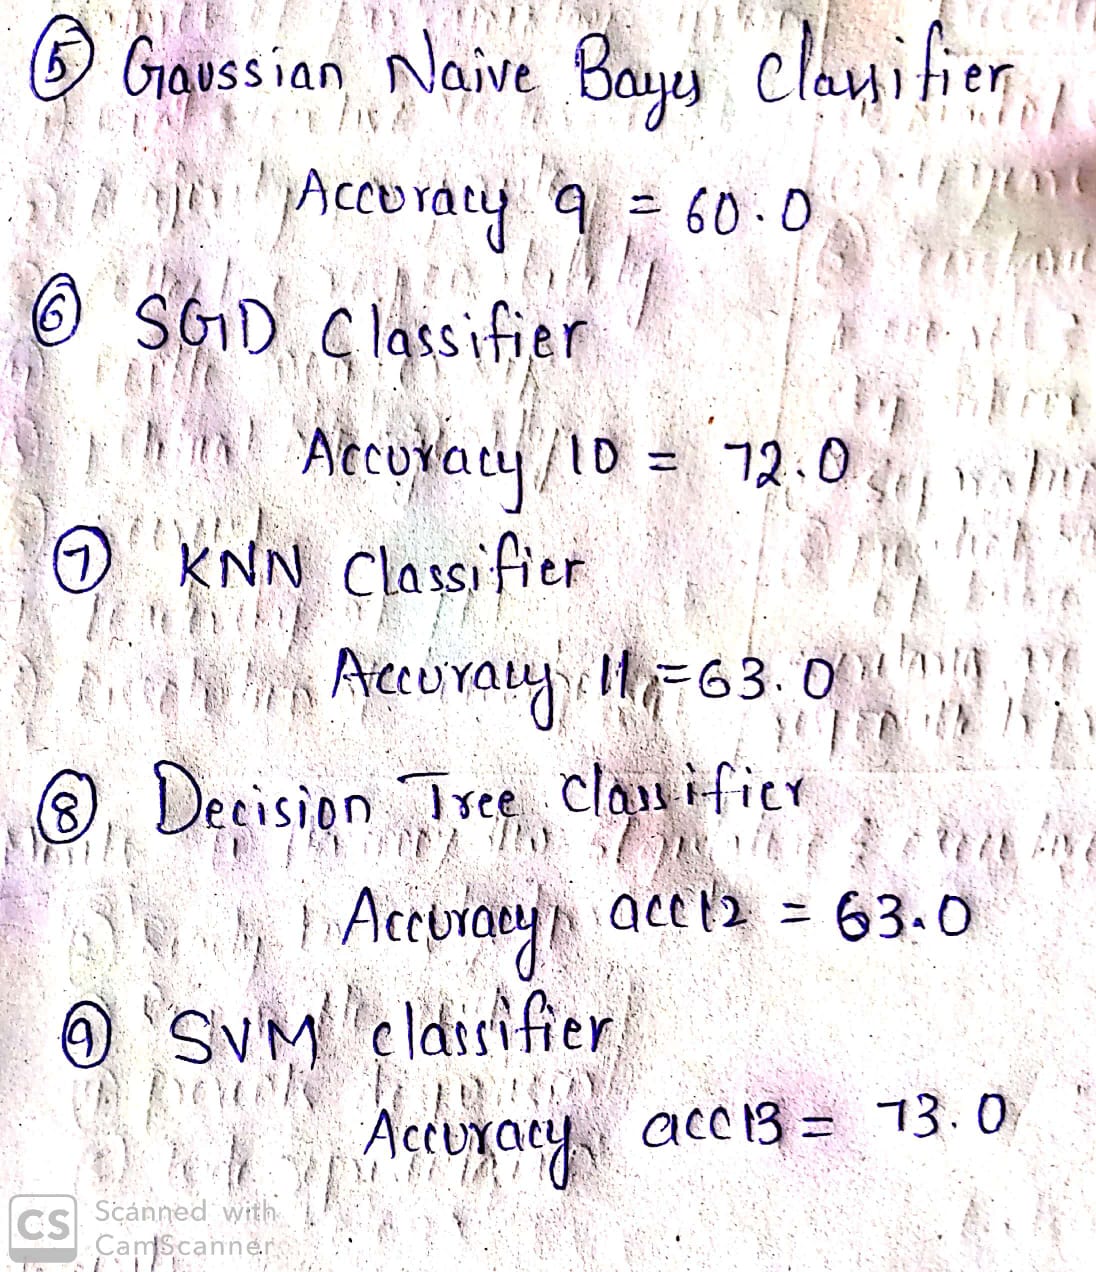 ⑤ Gaussian Naive Bayes Classifier
Accuracy 9 = 60.0
⑥ SGD Classifier
Accuracy 10 = 72.0
⑦ KNN Classifier
Accuracy 11 = 63.0
⑧ Decision Tree Classifier
Accuracy acc12 = 63.0
⑨ SVM classifier
Accuracy acc13 = 73.0
CS Scanned with
CamScanner